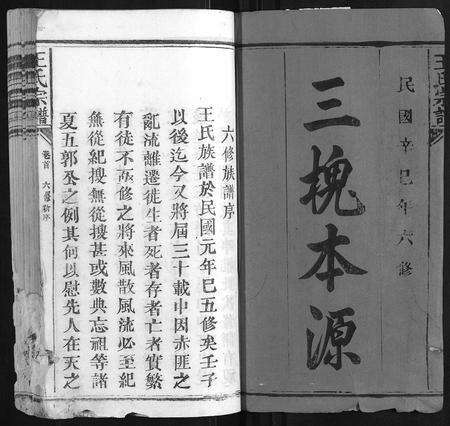 民國辛巳年六修
三槐本源
六修族譜序
王氏族譜於民國元年已五修矣壬子
以後迄今又將屆三十載中因赤匪之
亂流離遷徙生者死者存者亡者實繁
有徒不亟修之將來風散風流必至紀
無從紀搜無從搜甚或數典忘祖等諸
夏五郭公之例其何以慰先人在天之
王氏宗譜
卷首
六修新序